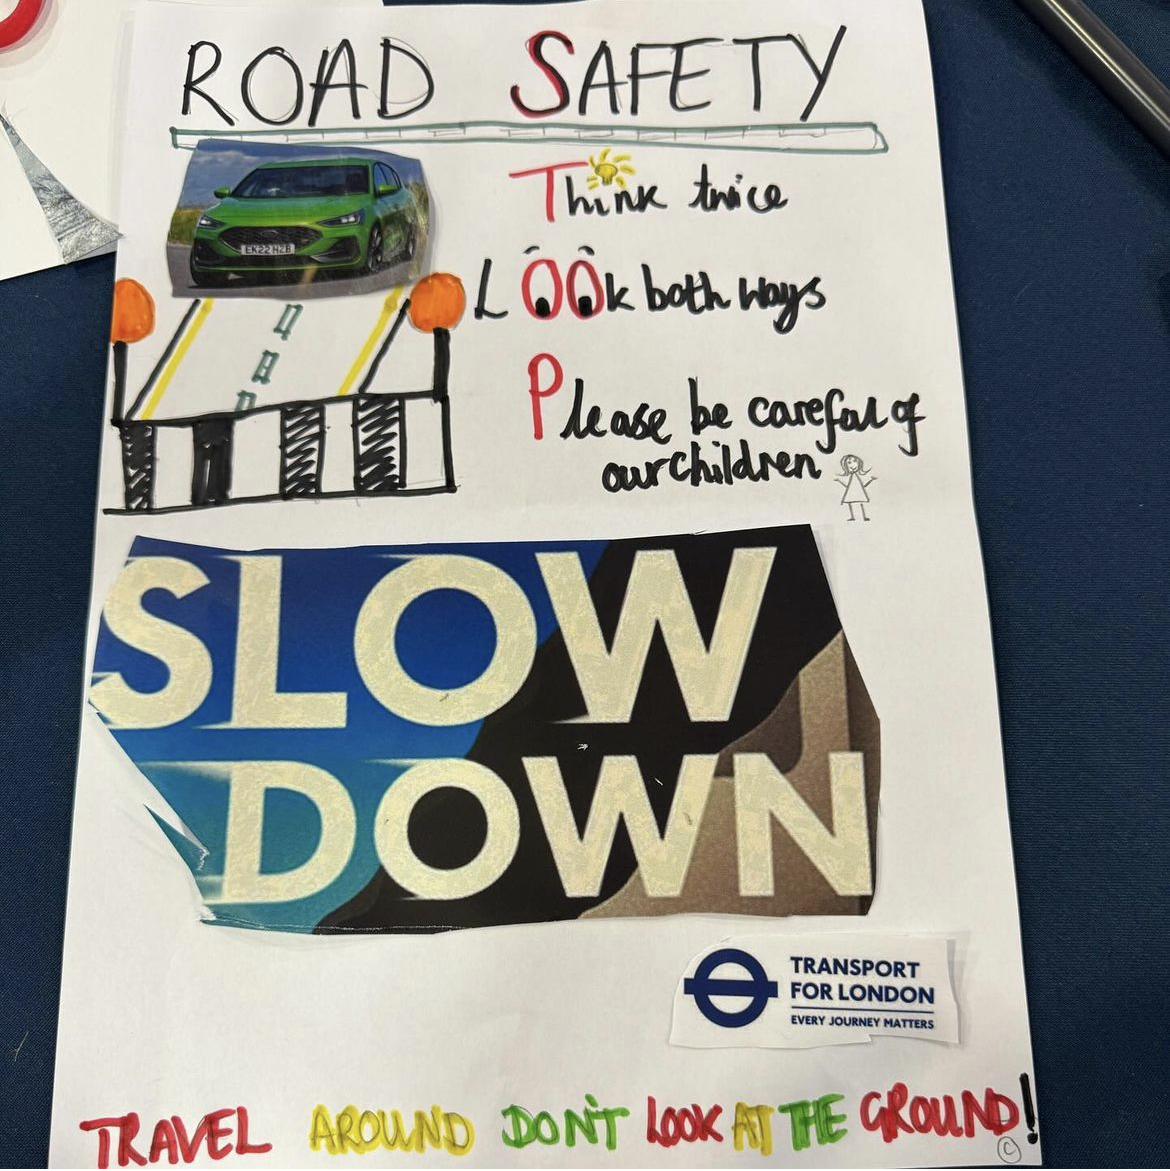 ROAD SAFETY
EK22 HZB
Think twice
LOOk both ways
Please be careful of
our children
SLOW
DOWN
TRANSPORT
FOR LONDON
EVERY JOURNEY MATTERS
TRAVEL AROUND DON'T LOOK AT THE GROUND!
©